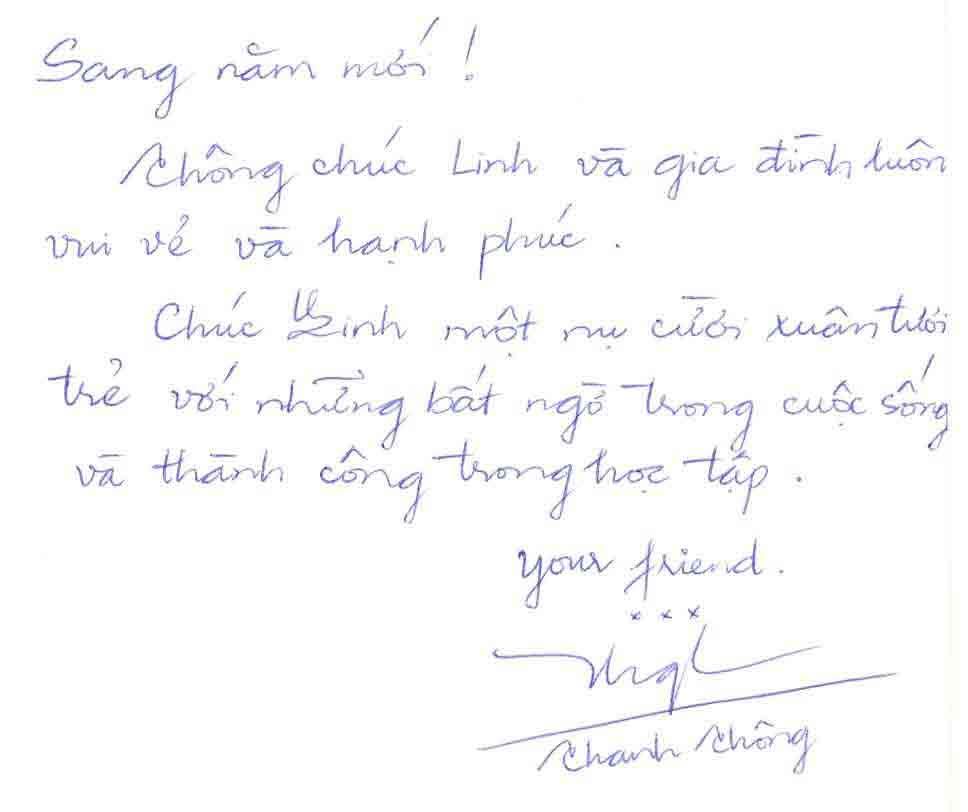 Sang năm mới !
Thông chúc Linh và gia đình luôn
vui vẻ và hạnh phúc .
Chúc Linh một nụ cười xuân tươi
trẻ với những bất ngờ trong cuộc sống
và thành công trong học tập .
your friend .
x x x
Thanh Thông